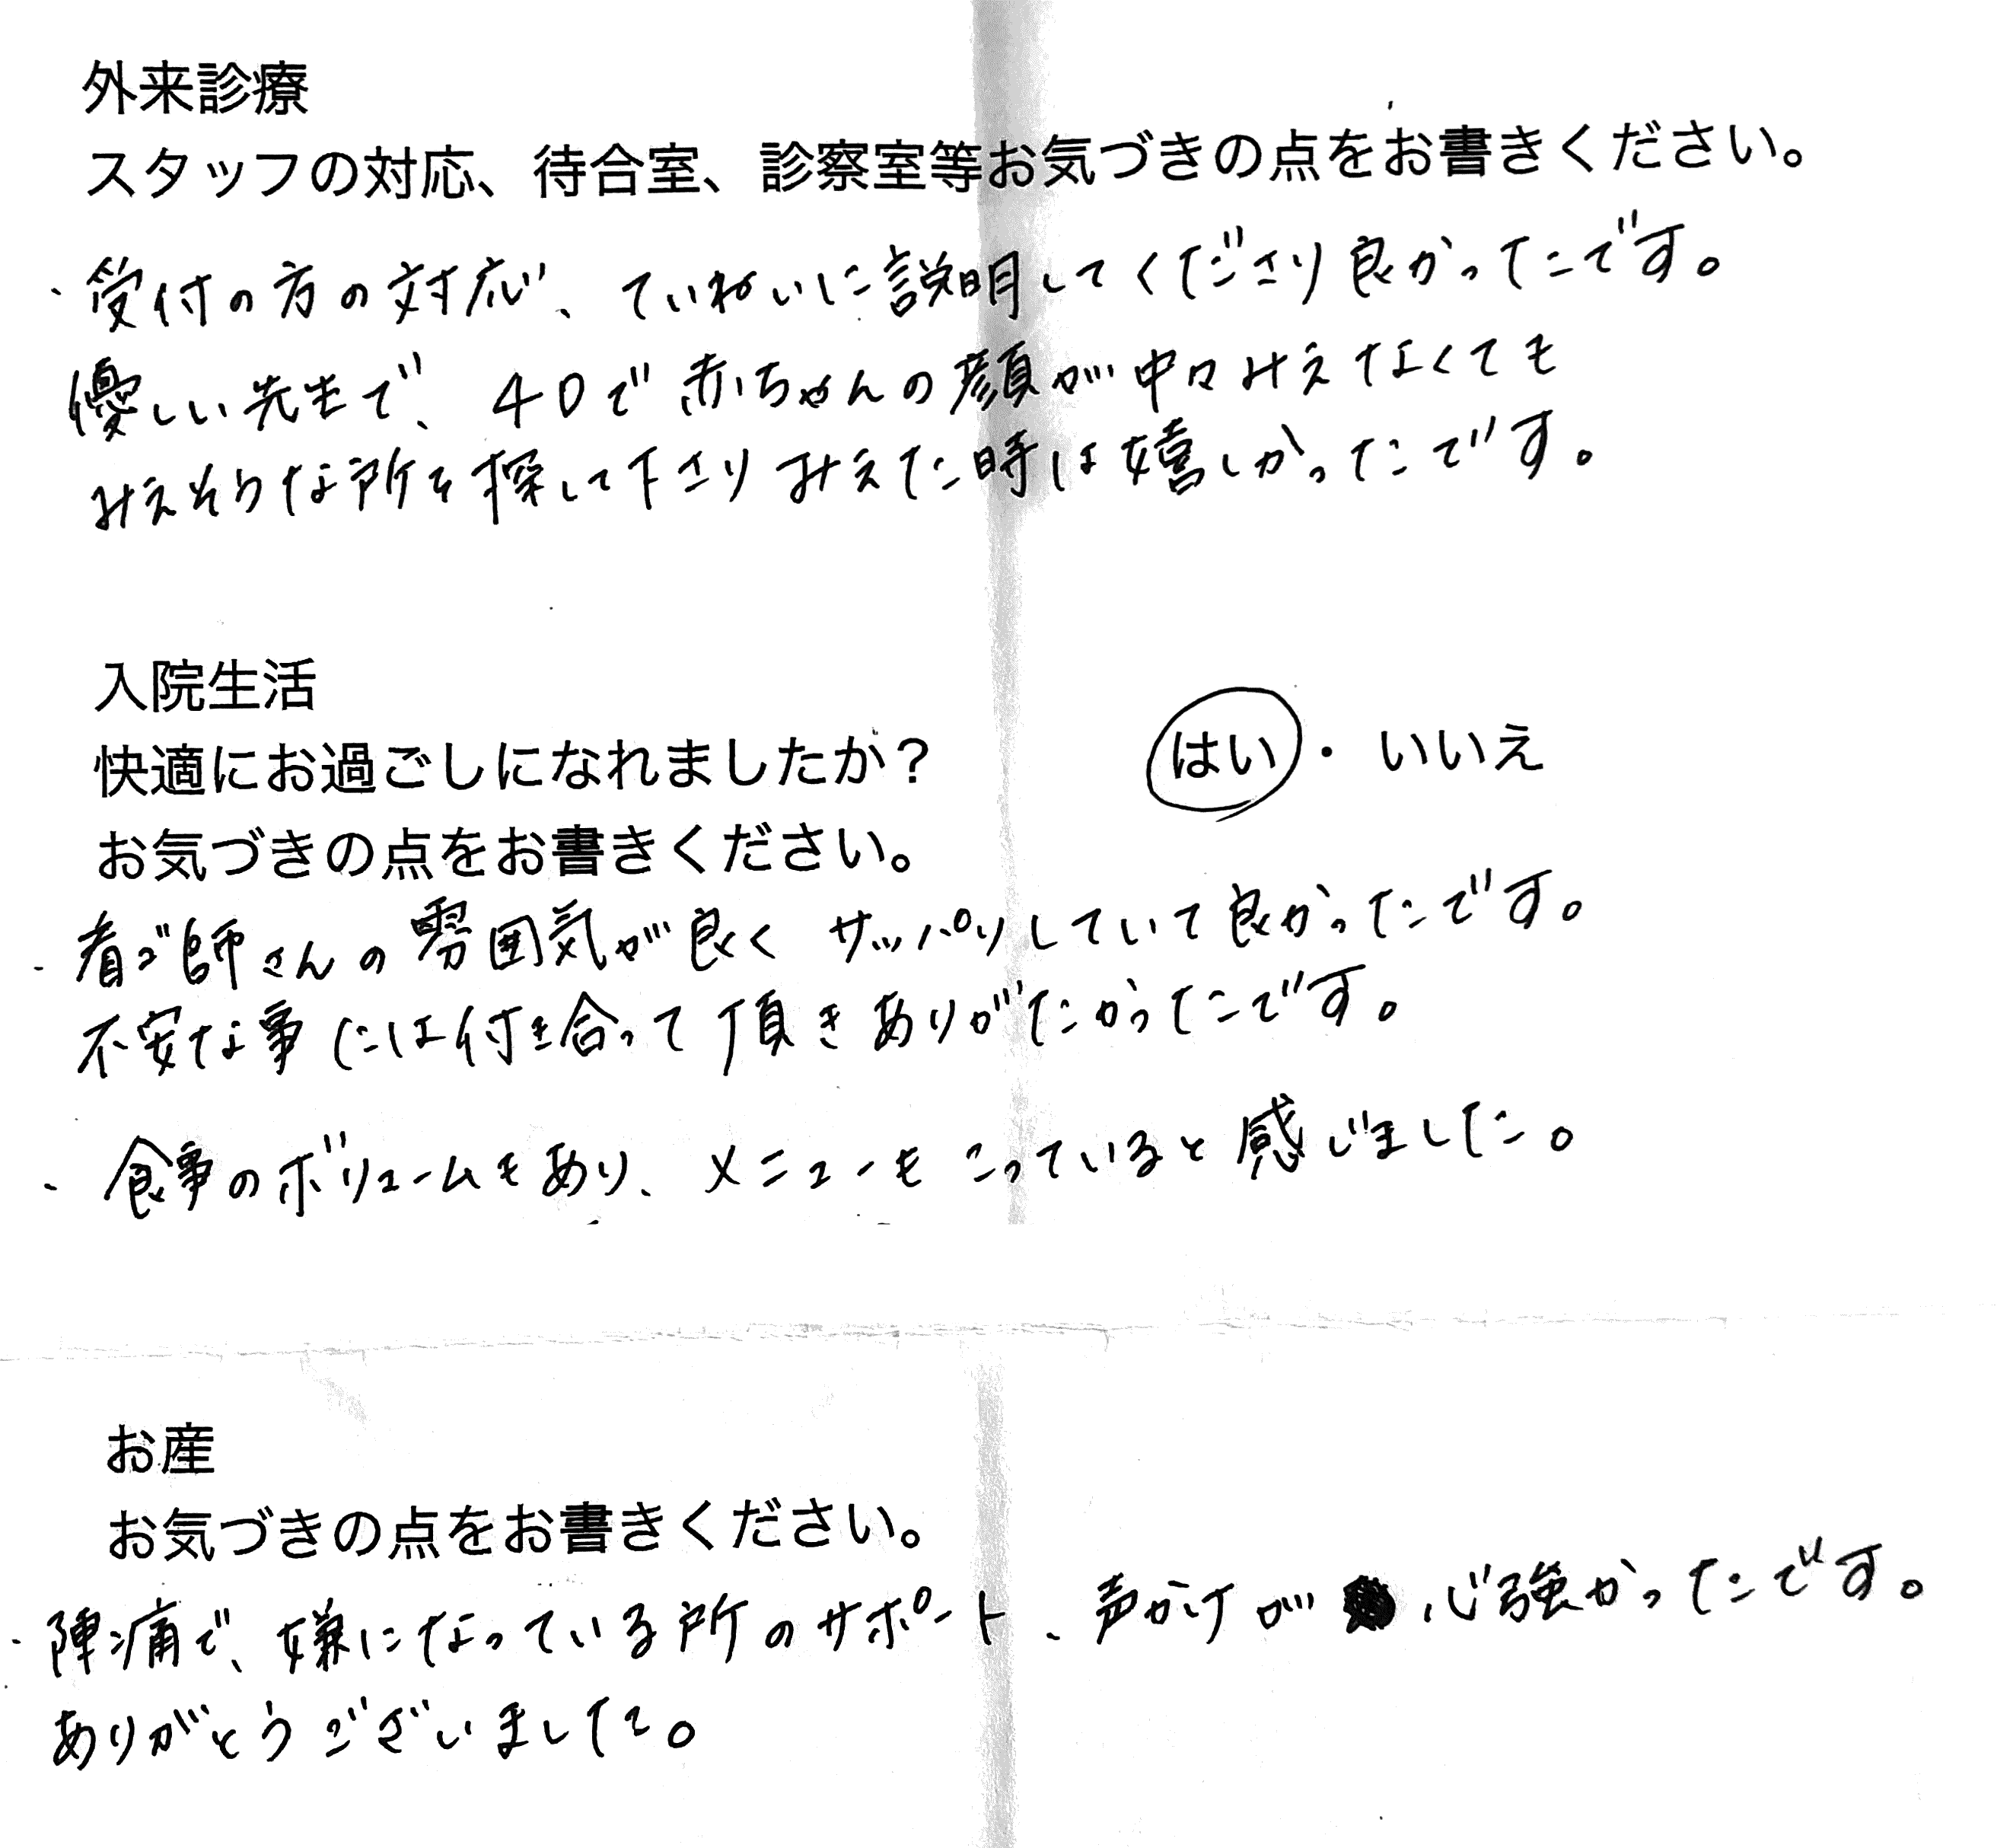 外来診療
スタッフの対応、待合室、診察室等お気づきの点をお書きください。
・受付の方の対応、ていねいに説明してくださり良かったです。
優しい先生で、4Dで赤ちゃんの顔が中々みえなくても
みえそうな所を探して下さりみえた時は嬉しかったです。
入院生活
快適にお過ごしになれましたか? はい・いいえ
お気づきの点をお書きください。
・看ご師さんの雰囲気が良くサッパリしていて良かったです。
不安な事には付き合って頂きありがたかったです。
・食事のボリュームもあり、メニューもこっていると感じました。
お産
お気づきの点をお書きください。
・陣痛で、嫌になっている所のサポート、声かけが心強かったです。
ありがとうございました。